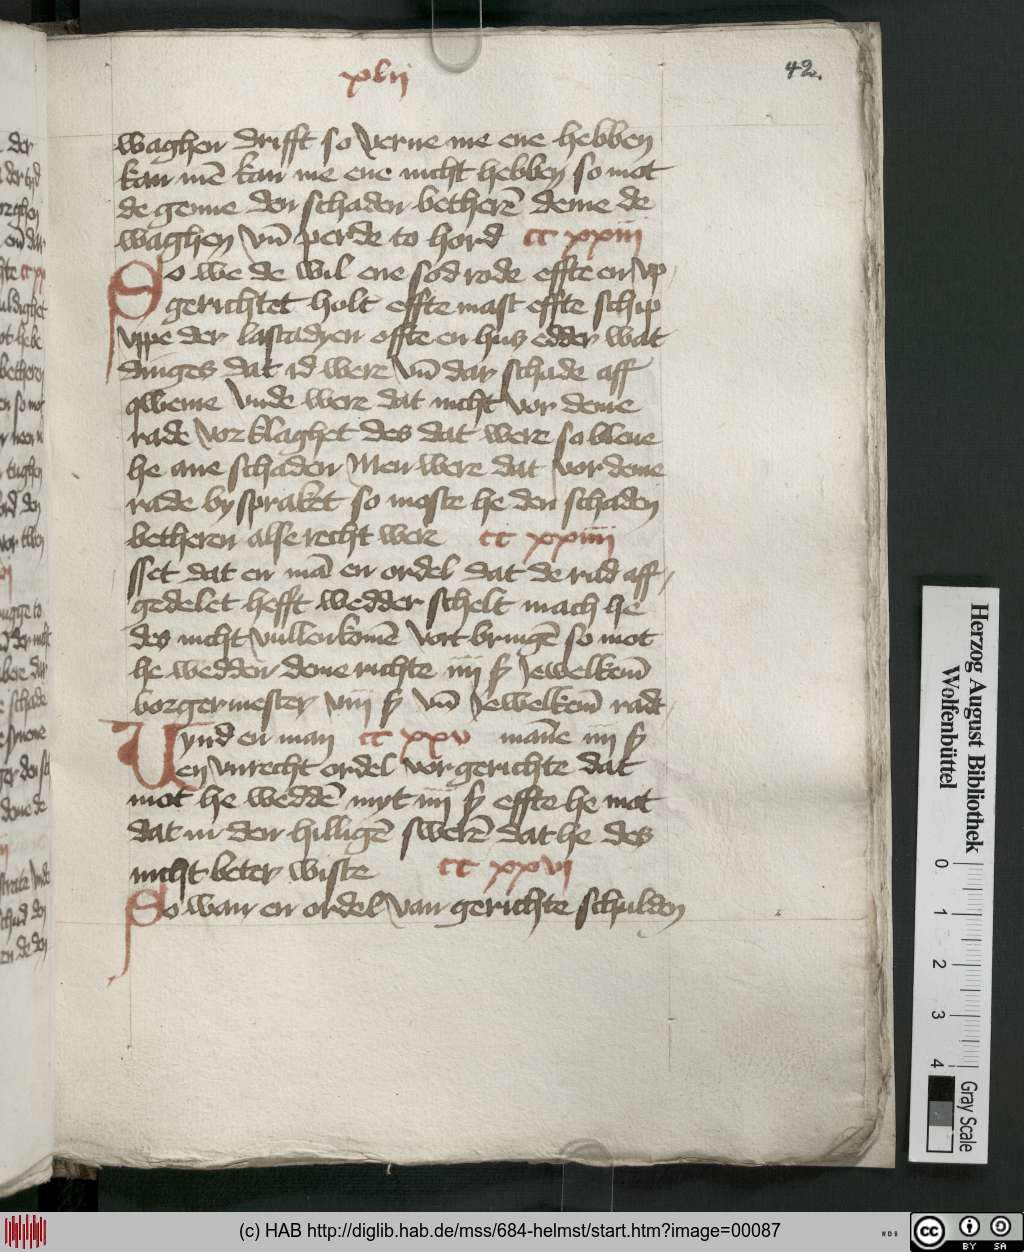 xlii
42.
waghen drifft so verne me ene hebben
kan mē kan me ene nicht hebben so mot
de genne den schaden betherē deme de
waghen vn̄ perde to hord cc xxiii
So we de wil ene sod rode effte en vp
gerichtet holt effte mast effte schip
vppe der lastadyen offte en hus edder wat
dinges dat id were vn̄ dar schade aff
qweme vnde were dat nicht vor deme
rade vorklaghet des dat were so bleue
he ane schaden Men were dat vor deme
rade byspraket so moste he den schaden
betheren alse recht were cc xxiiii
sset dat en mā en ordel dat de rad aff
gedelet hefft wedder schelt mach he
des nicht vullenkomē vort bringē so mot
he wedden deme richte iiii ß Jewelkem̄
borgermester viii ß vn̄ Jewelkem̄ rad
Vynd en man cc xxv māne iiii ß
en vnrecht ordel vor gerichte dat
mot he weddē myt iiii ß effte he mot
dat in den hilligē swerē dat he des
nicht beter wiste cc xxvi
So wan en ordel van gerichte schulden
Herzog August Bibliothek
Wolfenbüttel
0 1 2 3 4
Gray Scale
(c) HAB http://diglib.hab.de/mss/684-helmst/start.htm?image=00087
WDB
cc BY SA